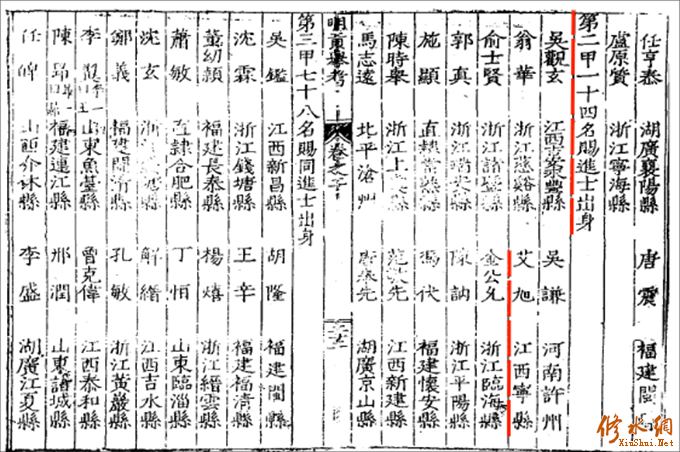 任亨泰 湖廣襄陽縣 唐震 福建閩
盧原質 浙江寧海縣
第二甲一十四名賜進士出身
吳觀玄 江西 豐縣 吳謙 河南許州
翁華 浙江慈谿縣 艾旭 江西寧縣
俞士賢 浙江諸暨縣 金公允 浙江臨海縣
郭真 浙江 縣 陳訥 浙江平陽縣
施顯 直隸常熟縣 馮代 福建懷安縣
陳時舉 浙江上 先 江西新建縣
馬志遠 北平滄州 先 湖廣京山縣
明貢舉考 卷之
第三甲七十八名賜同進士出身
吳鑑 江西新昌縣 胡隆 福建閩縣
沈霖 浙江錢塘縣 王辛 福建福清縣
董幼穎 福建長泰縣 楊熺 浙江縉雲縣
蕭敏 直隸合肥縣 丁恒 山東臨淄縣
沈玄 浙江 縣 解縉 江西吉水縣
鄭義 福建 縣 孔敏 浙江黃巖縣
李 山東魚臺縣 曾克偉 江西泰和縣
陳 福建連江縣 邢潤 山東諸城縣
任 山西介休縣 李盛 湖廣江夏縣
修水網
XiuShui.Net